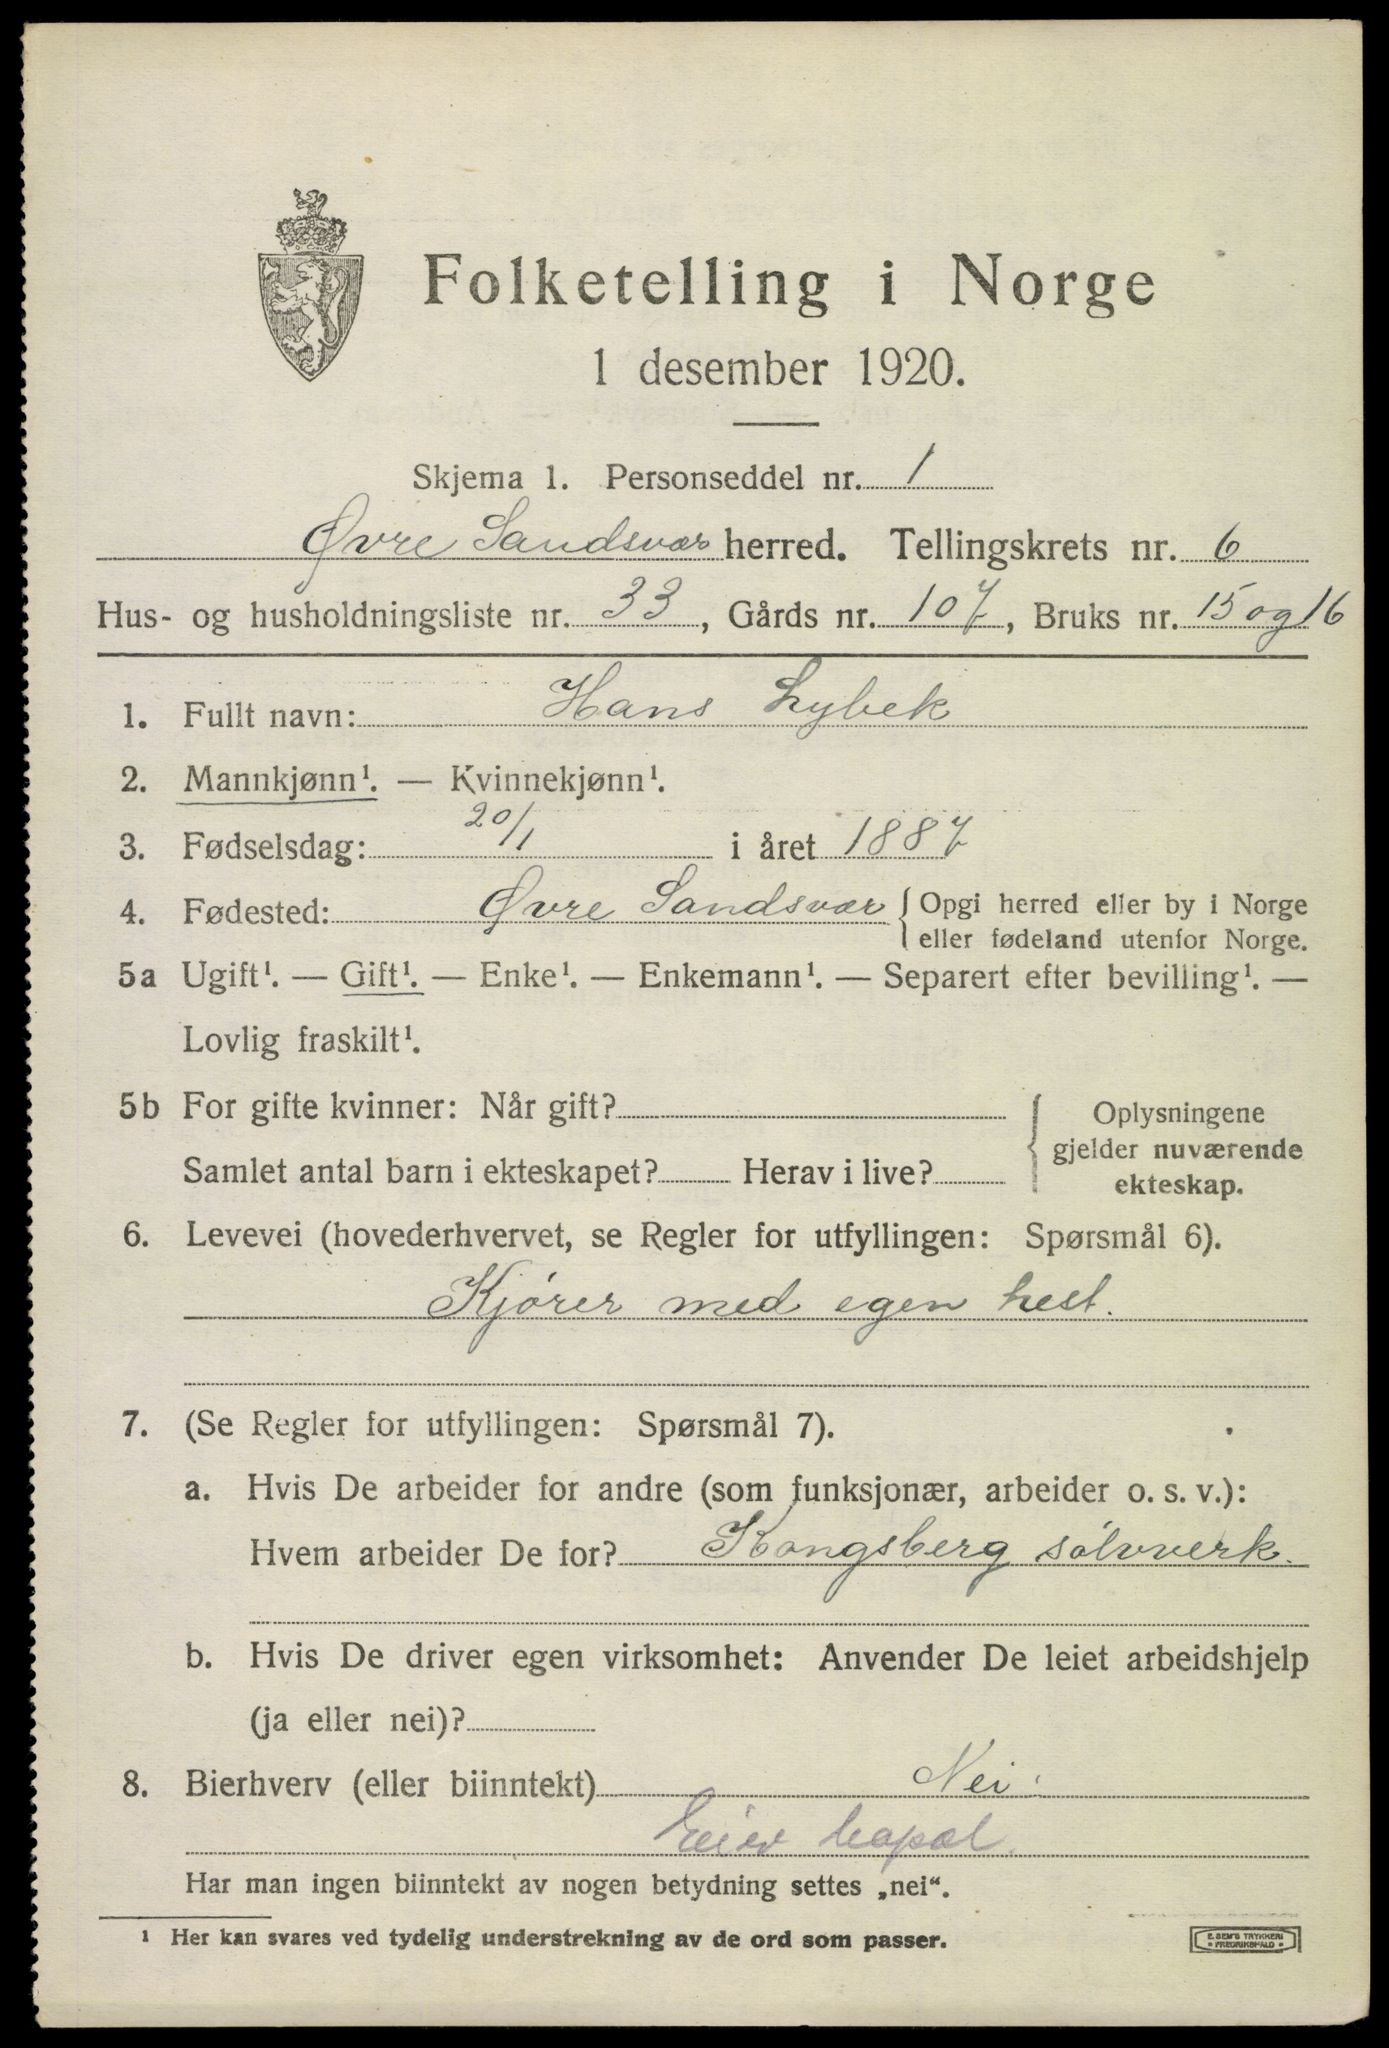 Folketelling i Norge
1 desember 1920.
Skjema 1. Personseddel nr. 1
Øvre Sandsvær herred. Tellingskrets nr. 6
Hus- og husholdningsliste nr. 33, Gårds nr. 107, Bruks nr. 15 og 16
1. Fullt navn: Hans Lybek
2. Mannkjønn¹. — Kvinnekjønn¹.
3. Fødselsdag: 20/1 i året 1887
4. Fødested: Øvre Sandsvær { Opgi herred eller by i Norge
eller fødeland utenfor Norge.
5a Ugift¹. — Gift¹. — Enke¹. — Enkemann¹. — Separert efter bevilling¹. —
Lovlig fraskilt¹.
5b For gifte kvinner: Når gift?
Samlet antal barn i ekteskapet? Herav i live?
Oplysningene
gjelder nuværende
ekteskap.
6. Levevei (hovederhvervet, se Regler for utfyllingen: Spørsmål 6).
Kjører med egen hest.
7. (Se Regler for utfyllingen: Spørsmål 7).
a. Hvis De arbeider for andre (som funksjonær, arbeider o. s. v.):
Hvem arbeider De for? Kongsberg sølvverk.
b. Hvis De driver egen virksomhet: Anvender De leiet arbeidshjelp
(ja eller nei)?
8. Bierhverv (eller biinntekt) Nei.
Eier
Har man ingen biinntekt av nogen betydning settes „nei“.
¹ Her kan svares ved tydelig understrekning av de ord som passer.
E. SEM'S TRYKKERI
• FREDRIKSHALD •